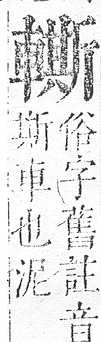 俗字舊註音
斯車也泥